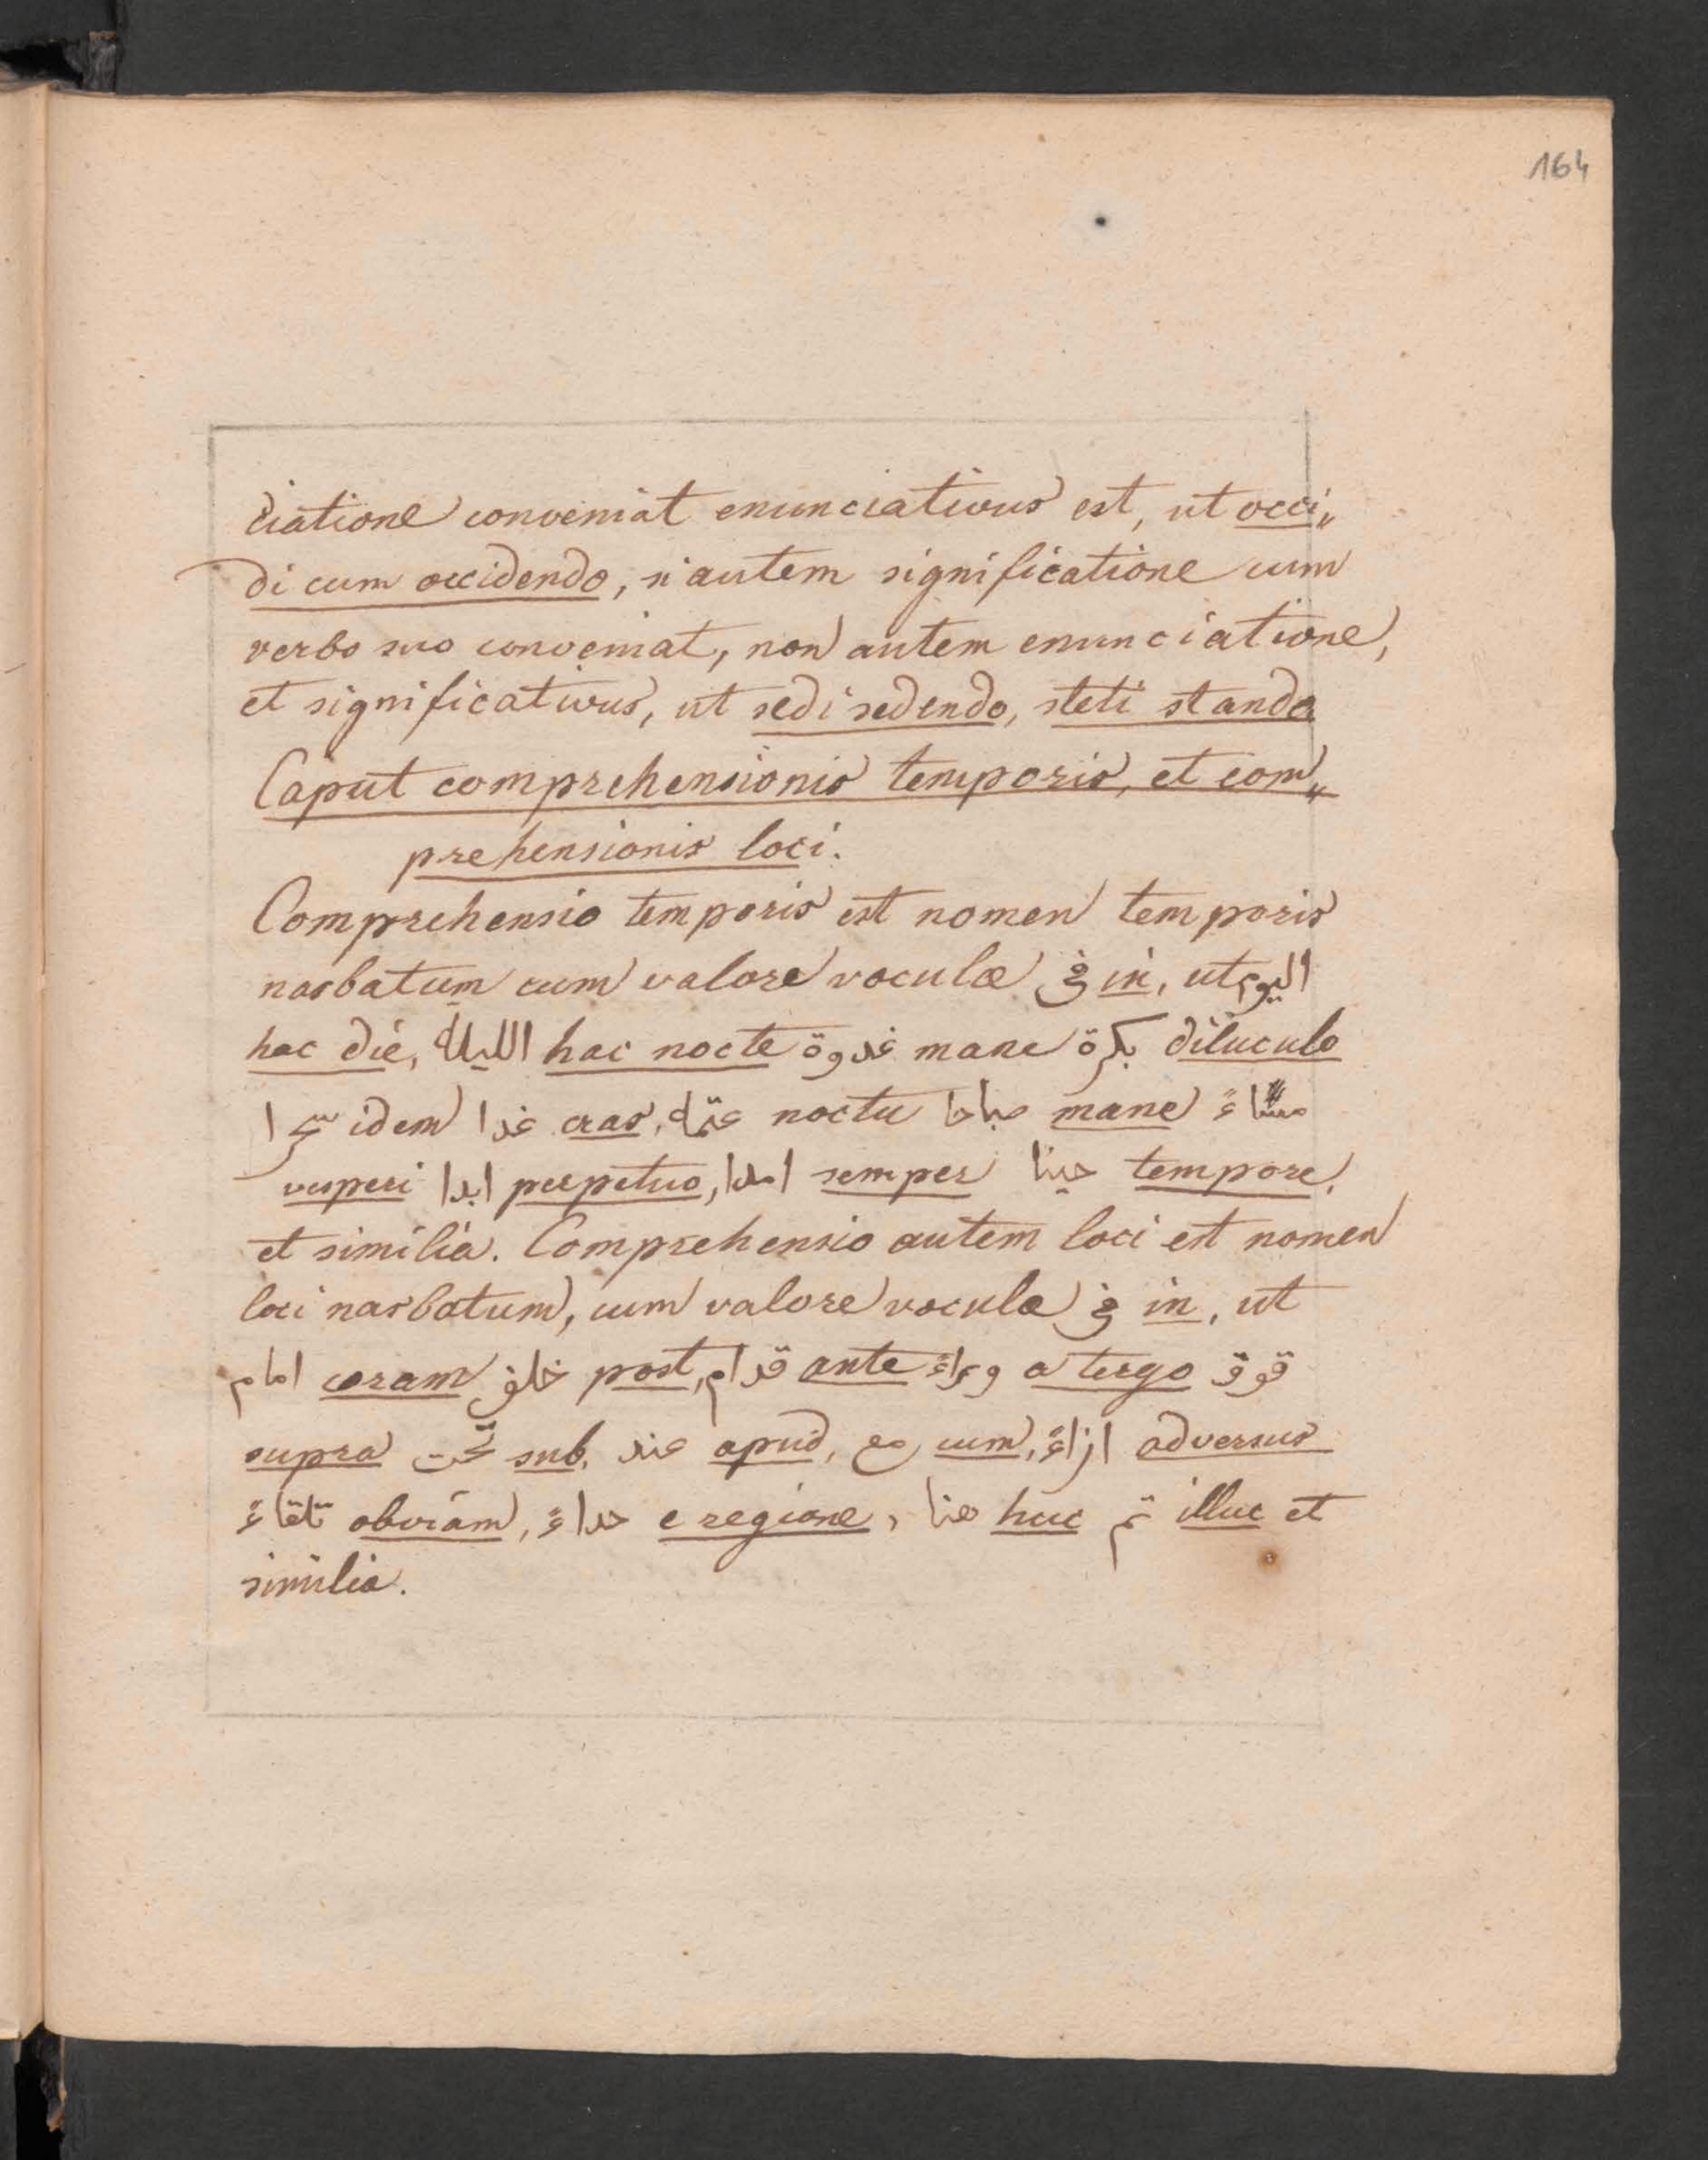 164
ciatione conveniat enunciativus est, ut occi„
di cum occidendo, si autem significatione cum
verbo suo conveniat, non autem enunciatione,
et significativus, ut sedi sedendo, steti stando
Caput comprehensionis temporis, et com„
prehensionis loci.
Comprehensio temporis est nomen temporis
nasbatum cum valore voculæ في in, ut اليوم
hac die, الليلة hac nocte غدوة mane بكرة diluculo
سحرا idem غدا cras, عتمة noctu صباحا mane مساءً
vesperi ابدا perpetuo, امدا semper حينا tempore,
et similia. Comprehensio autem loci est nomen
loci nasbatum, cum valore vocula في in, ut
امام coram خلف post, قدام ante وراءً a tergo فوق
supra تحت sub, عند apud, مع cum, ازاءً adversus
تلقاءً obviam, حداءً e regione, هنا huc ثم illuc et
similia.